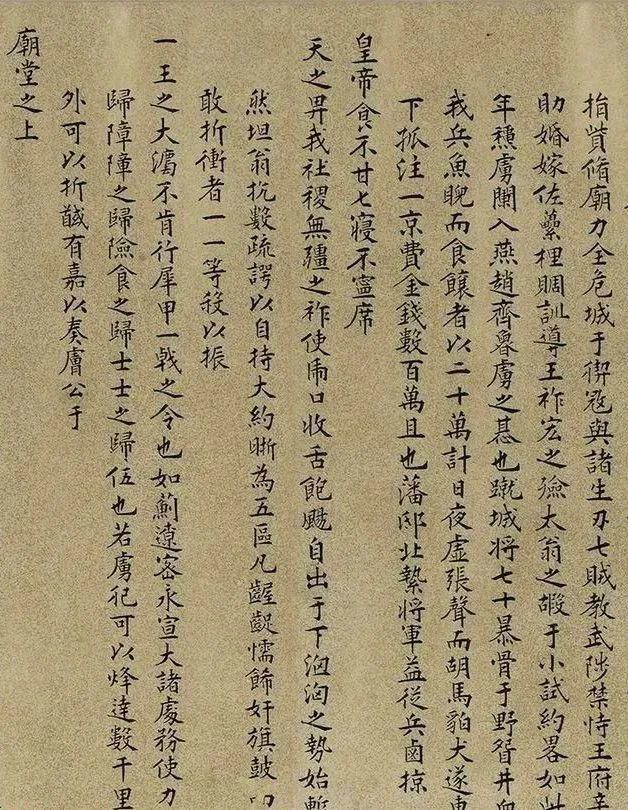 指貲脩廟力全危城于禦寇與諸生刃七賊教武陟禁恃王府
助婚嫁佐虆梩賙訓導王祚宏之殮太翁之嘏于小試約畧如此
年穤虜闌入燕趙齊魯虜之惎也蹴城將七十暴骨于野眢井
我兵魚睨而食饟者以二十萬計日夜虛張聲而胡馬豿犬遂
下孤注一京費金錢數百萬且也藩邸北縶將軍益從兵鹵掠
皇帝食不甘七寢不寧席
天之畀我社稷無疆之祚使帍口收舌飽颺自出于下洶洶之勢始暫
然坦翁抗數疏諤以自持大約晰為五區凡齷齪懦餙奸旗鼓
敢折衝者一一等殺以振
一王之大漘不肯行犀甲一戟之令也如薊遼密永宣大諸處務使力
歸障障之歸險食之歸士士之歸伍也若虜犯可以烽達數千里
外可以折馘有嘉以奏膚公于
廟堂之上